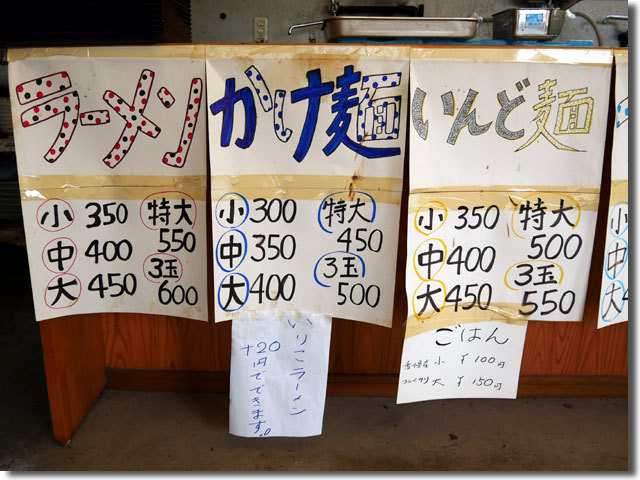 ラーメン
小 350
中 400
大 450
特大
550
3玉
600
かけ麺
小 300
中 350
大 400
特大
450
3玉
500
いんど麺
小 350
中 400
大 450
特大
500
3玉
550
いりこラーメン
+20
円でできます。
ごはん
小 ¥100円
コシヒカリ 大 ¥150円
小
中
大